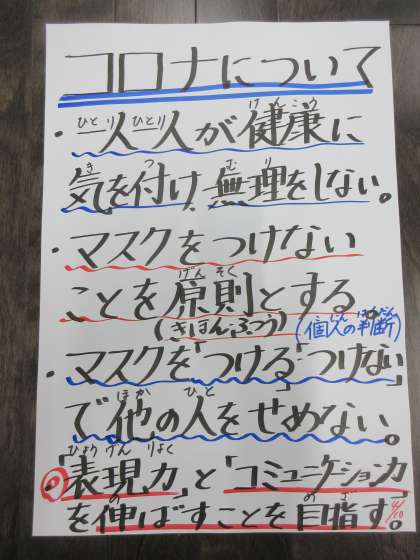 コロナについて
・一人一人が健康に
気を付け、無理をしない。
・マスクをつけない
ことを原則とする。
(きほん・ふつう)(個人の判断)
・マスクを「つける」「つけない」
で他の人をせめない。
「表現力」と「コミュニケーション力」
を伸ばすことを目指す。